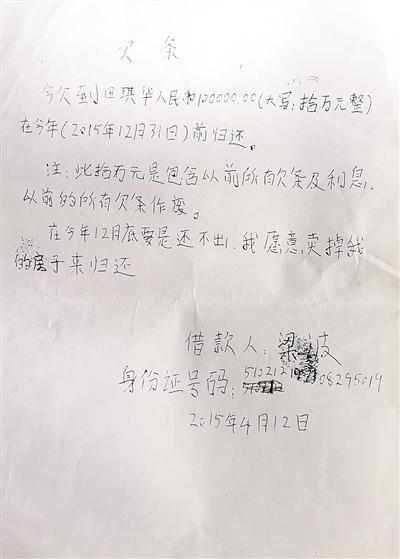 欠条
今欠到田琪华人民币100000.00(大写:拾万元整)
在今年(2015年12月31日)前归还。
注:此拾万元是包含以前所有欠条及利息,
以前的所有欠条作废。
在今年12月底要是还不出,我愿意卖掉我
的房子来归还
借款人:梁 波
身份证号码:
2015年4月12日